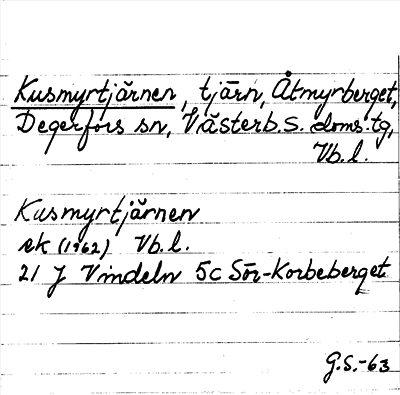 Kusmyrtjärnen, tjärn, Åtmyrberget,
Degerfors sn, Västerb. S. doms. tg,
Vb. l.
Kusmyrtjärnen
ek (1962) Vb. l.
21 J Vindeln 5c Sör-Korbeberget
G.S.-63